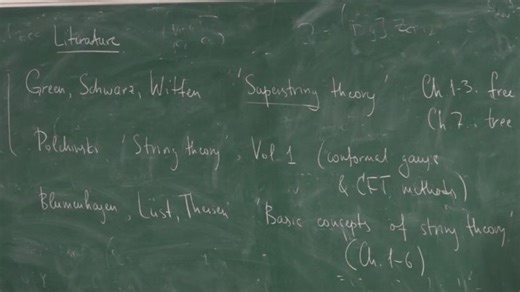 Literature
Green, Schwarz, Witten 'Superstring theory' Ch 1-3. free
Ch 7.. tree
Polchinski 'String theory', Vol 1 (conformal gauge
& CFT methods)
Blumenhagen, Lüst, Theisen 'Basic concepts of string theory'
(Ch. 1-6)